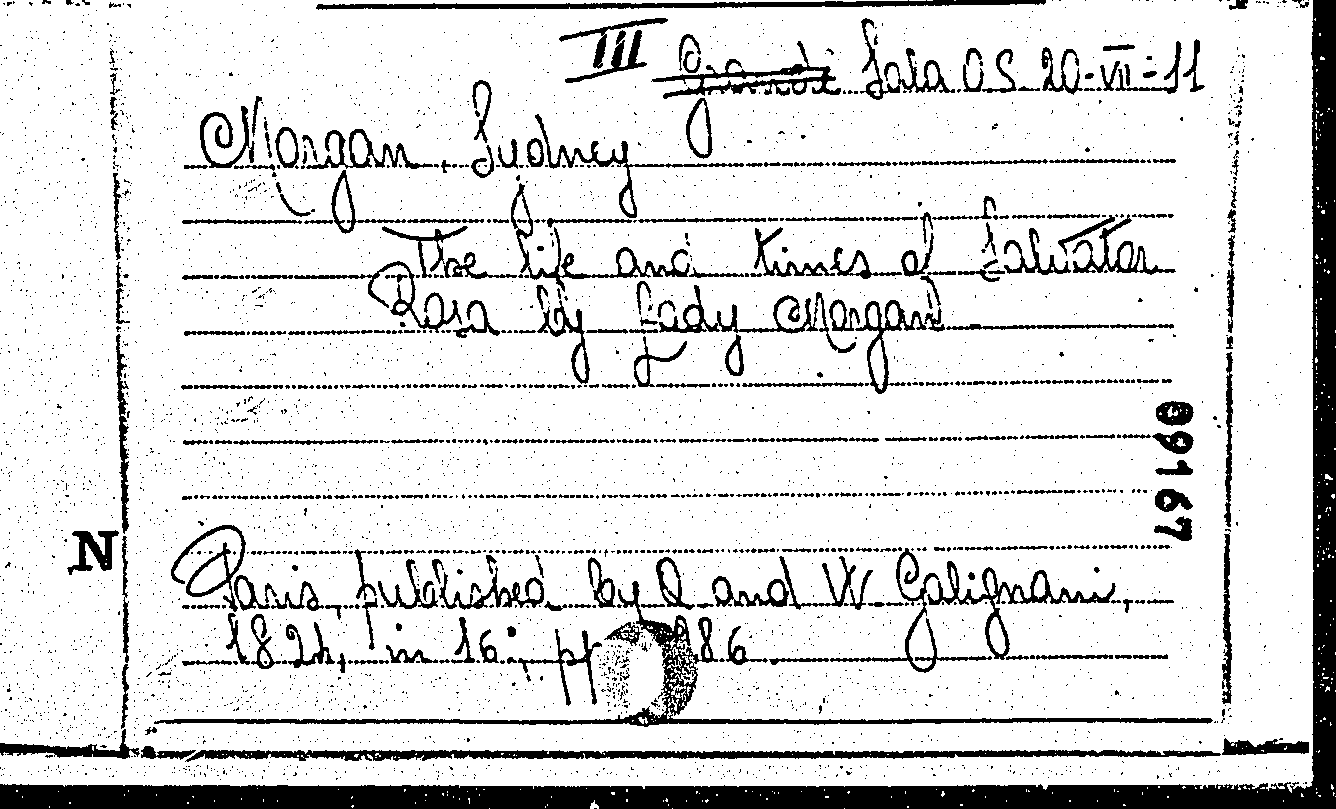 III Grande Sala O S. 20-VII-11
Morgan, Sydney
The life and times of Salvator
Rosa by Lady Morgan
09167
N
Paris, published by A and W Galignani,
1824, in 16°, pp 86.